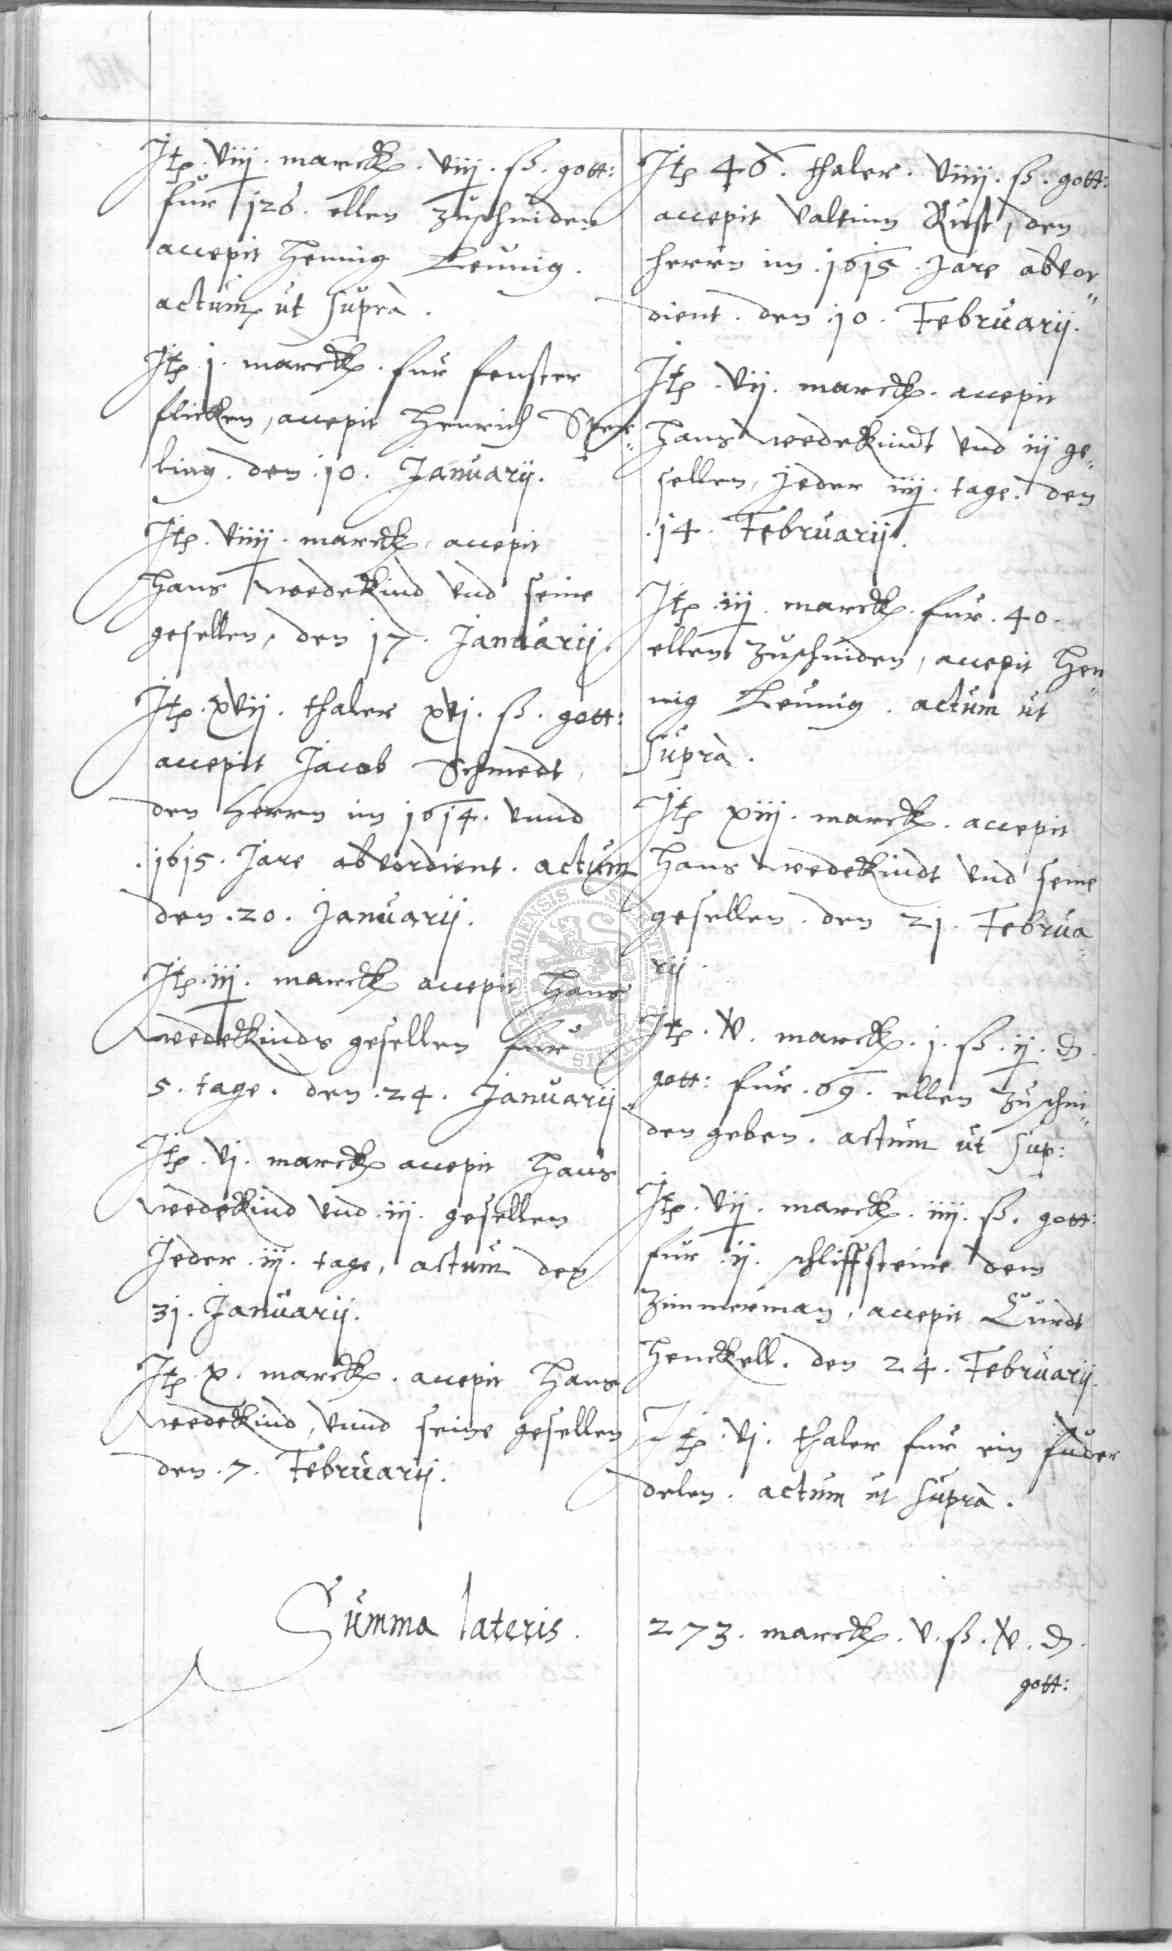 Jtem. viij. marck. viij. ß. gott:
für 126. ellen zuschniden
accepit Hennig Leunig.
actum ut suprà.
Jtem j. marck. für fenster
flicken, accepit Henrich
ling. den .10. Januarij.
Jtem. viiij. marck, accepit
Hans wedekind vnd seine
gesellen, den 17. Januarij.
Jtem. xvij. thaler xvj. ß. gott:
accepit Jacob Schmedt,
den Herrn im 1614. vnnd
.1615. Jare abvordient. actum
den .20. Januarij.
Jtem. iij. marck accepit Hans
wedekinds gesellen für
5. tage. den .24. Januarij
Jtem. vj. marck accepit Hans
wedekind vnd .iij. gesellen
Jeder .iij. tage, actum den
31. Januarij.
Jtem x. marck. accepit Hans
wedekind, vnnd seine gesellen
den .7. Februarij.
Jtem 46. thaler. viiij. ß. gott:
accepit Valtinn Rust, den
herrn im .1615. Jare abvor„
dient. den .10. Februarij.
Jtem. vij. marck. accepit
Hans wedekindt vnd iij ge„
sellen, Jeder iiij. tage. den
.14. Februarij.
Jtem .iij. marck. für .40.
ellen zuschniden, accepit Hen„
nig Leunig. actum ut
suprà.
Jtem xiij. marck. accepit
Hans wedekindt vnd seine
gesellen. den 21. Februa„
rij.
Jtem. v. marck. j. ß. ij. d.
gott: für .69. ellen zuschni„
den geben. actum ut sup:
Jtem. vij. marck. iiij. ß. gott:
für .ij. schliffsteine dem
Zimmerman, accepit Curdt
Henckell. den 24. Februarij.
Jtem. vj. thaler für ein fuder
delen. actum ut suprà.
Summa lateris. 273. marck. v. ß. v. d.
gott: